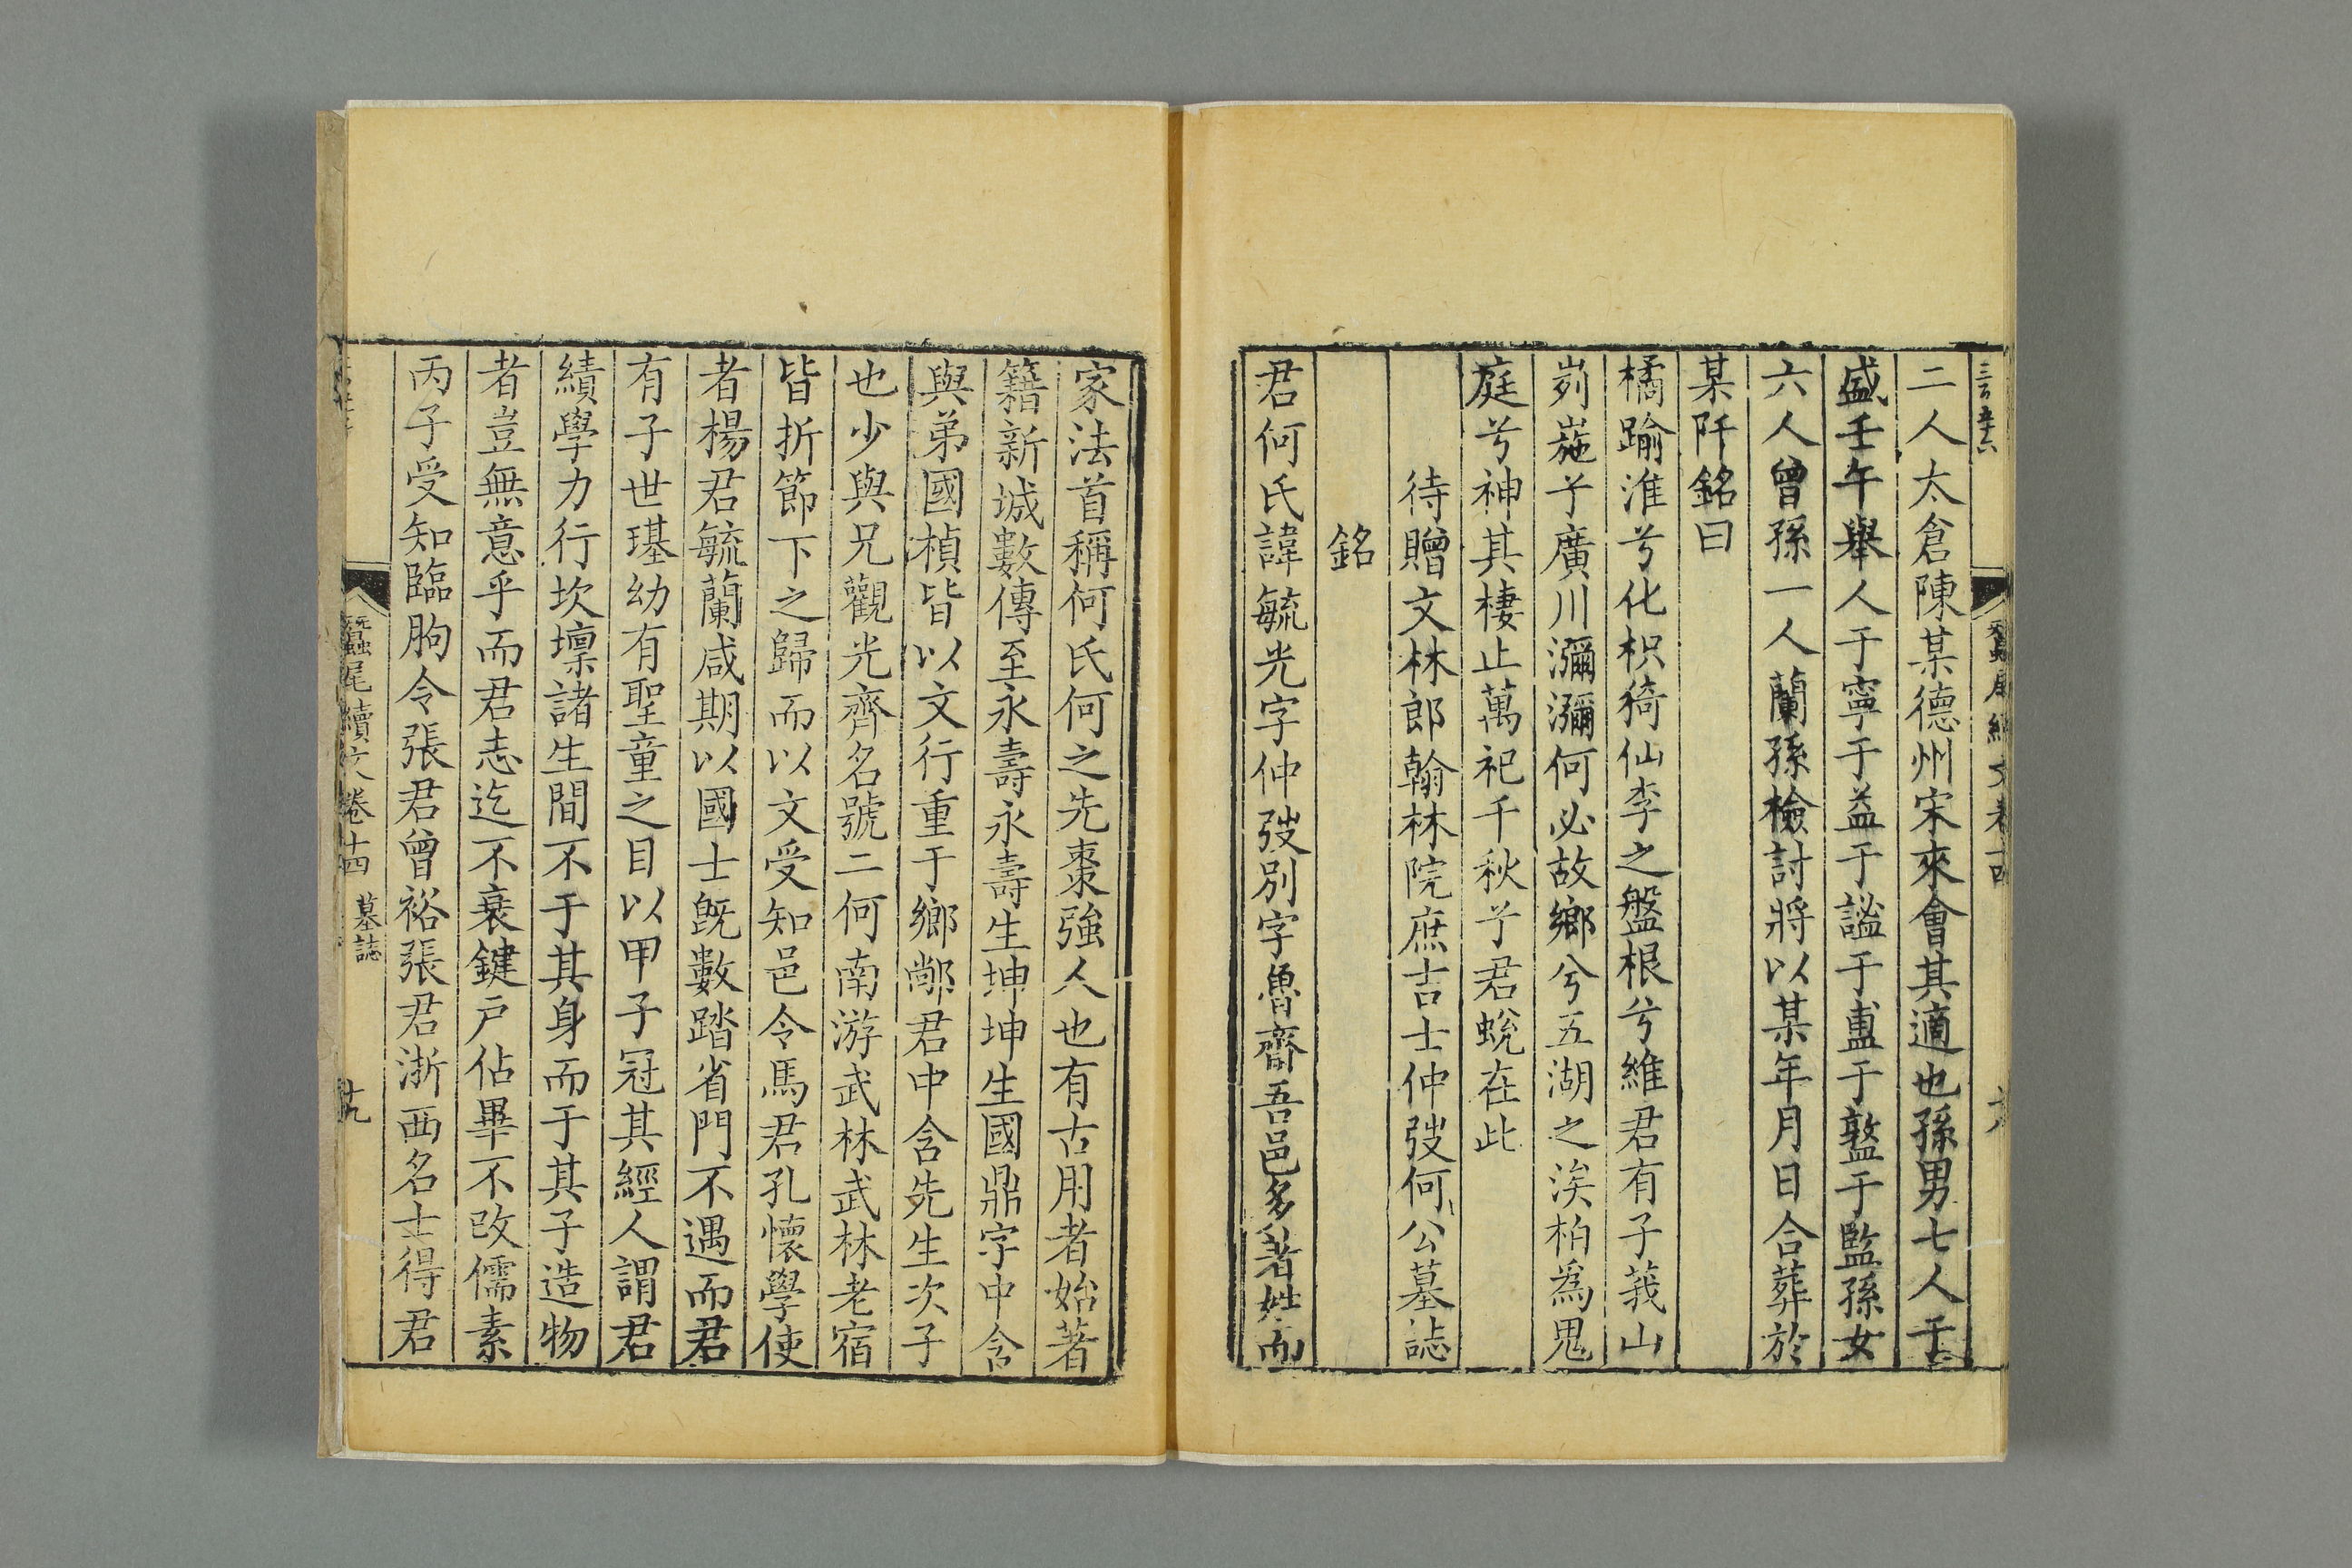 二人太倉陳某德州宋來會其適也孫男七人于
盛壬午舉人于寧于益于謐于盡于盭于監孫女
六人曾孫一人蘭孫檢討將以某年月日合葬於
某阡銘曰
橘踰淮兮化枳猗仙李之盤根兮維君有子莪山
峛崺兮廣川瀰瀰何必故鄉兮五湖之涘柏爲鬼
庭兮神其棲止萬祀千秋兮君蛻在此
待贈文林郎翰林院庶吉士仲弢何公墓誌
銘
君何氏諱毓光字仲弢別字魯齋吾邑多著姓而
家法首稱何氏何之先棗強人也有古用者始著
籍新城數傳至永壽永壽生坤坤生國鼎字中含
與弟國楨皆以文行重于鄉鄰君中含先生次子
也少與兄觀光齊名號二何南游武林武林老宿
皆折節下之歸而以文受知邑令馬君孔懷學使
者楊君毓蘭咸期以國士旣數踏省門不遇而君
有子世璂幼有聖童之目以甲子冠其經人謂君
績學力行坎壈諸生間不于其身而于其子造物
者豈無意乎而君志迄不衰鍵戶佔畢不改儒素
丙子受知臨朐令張君曾裕張君浙西名士得君
蠶尾續文 卷十四 墓誌 十九